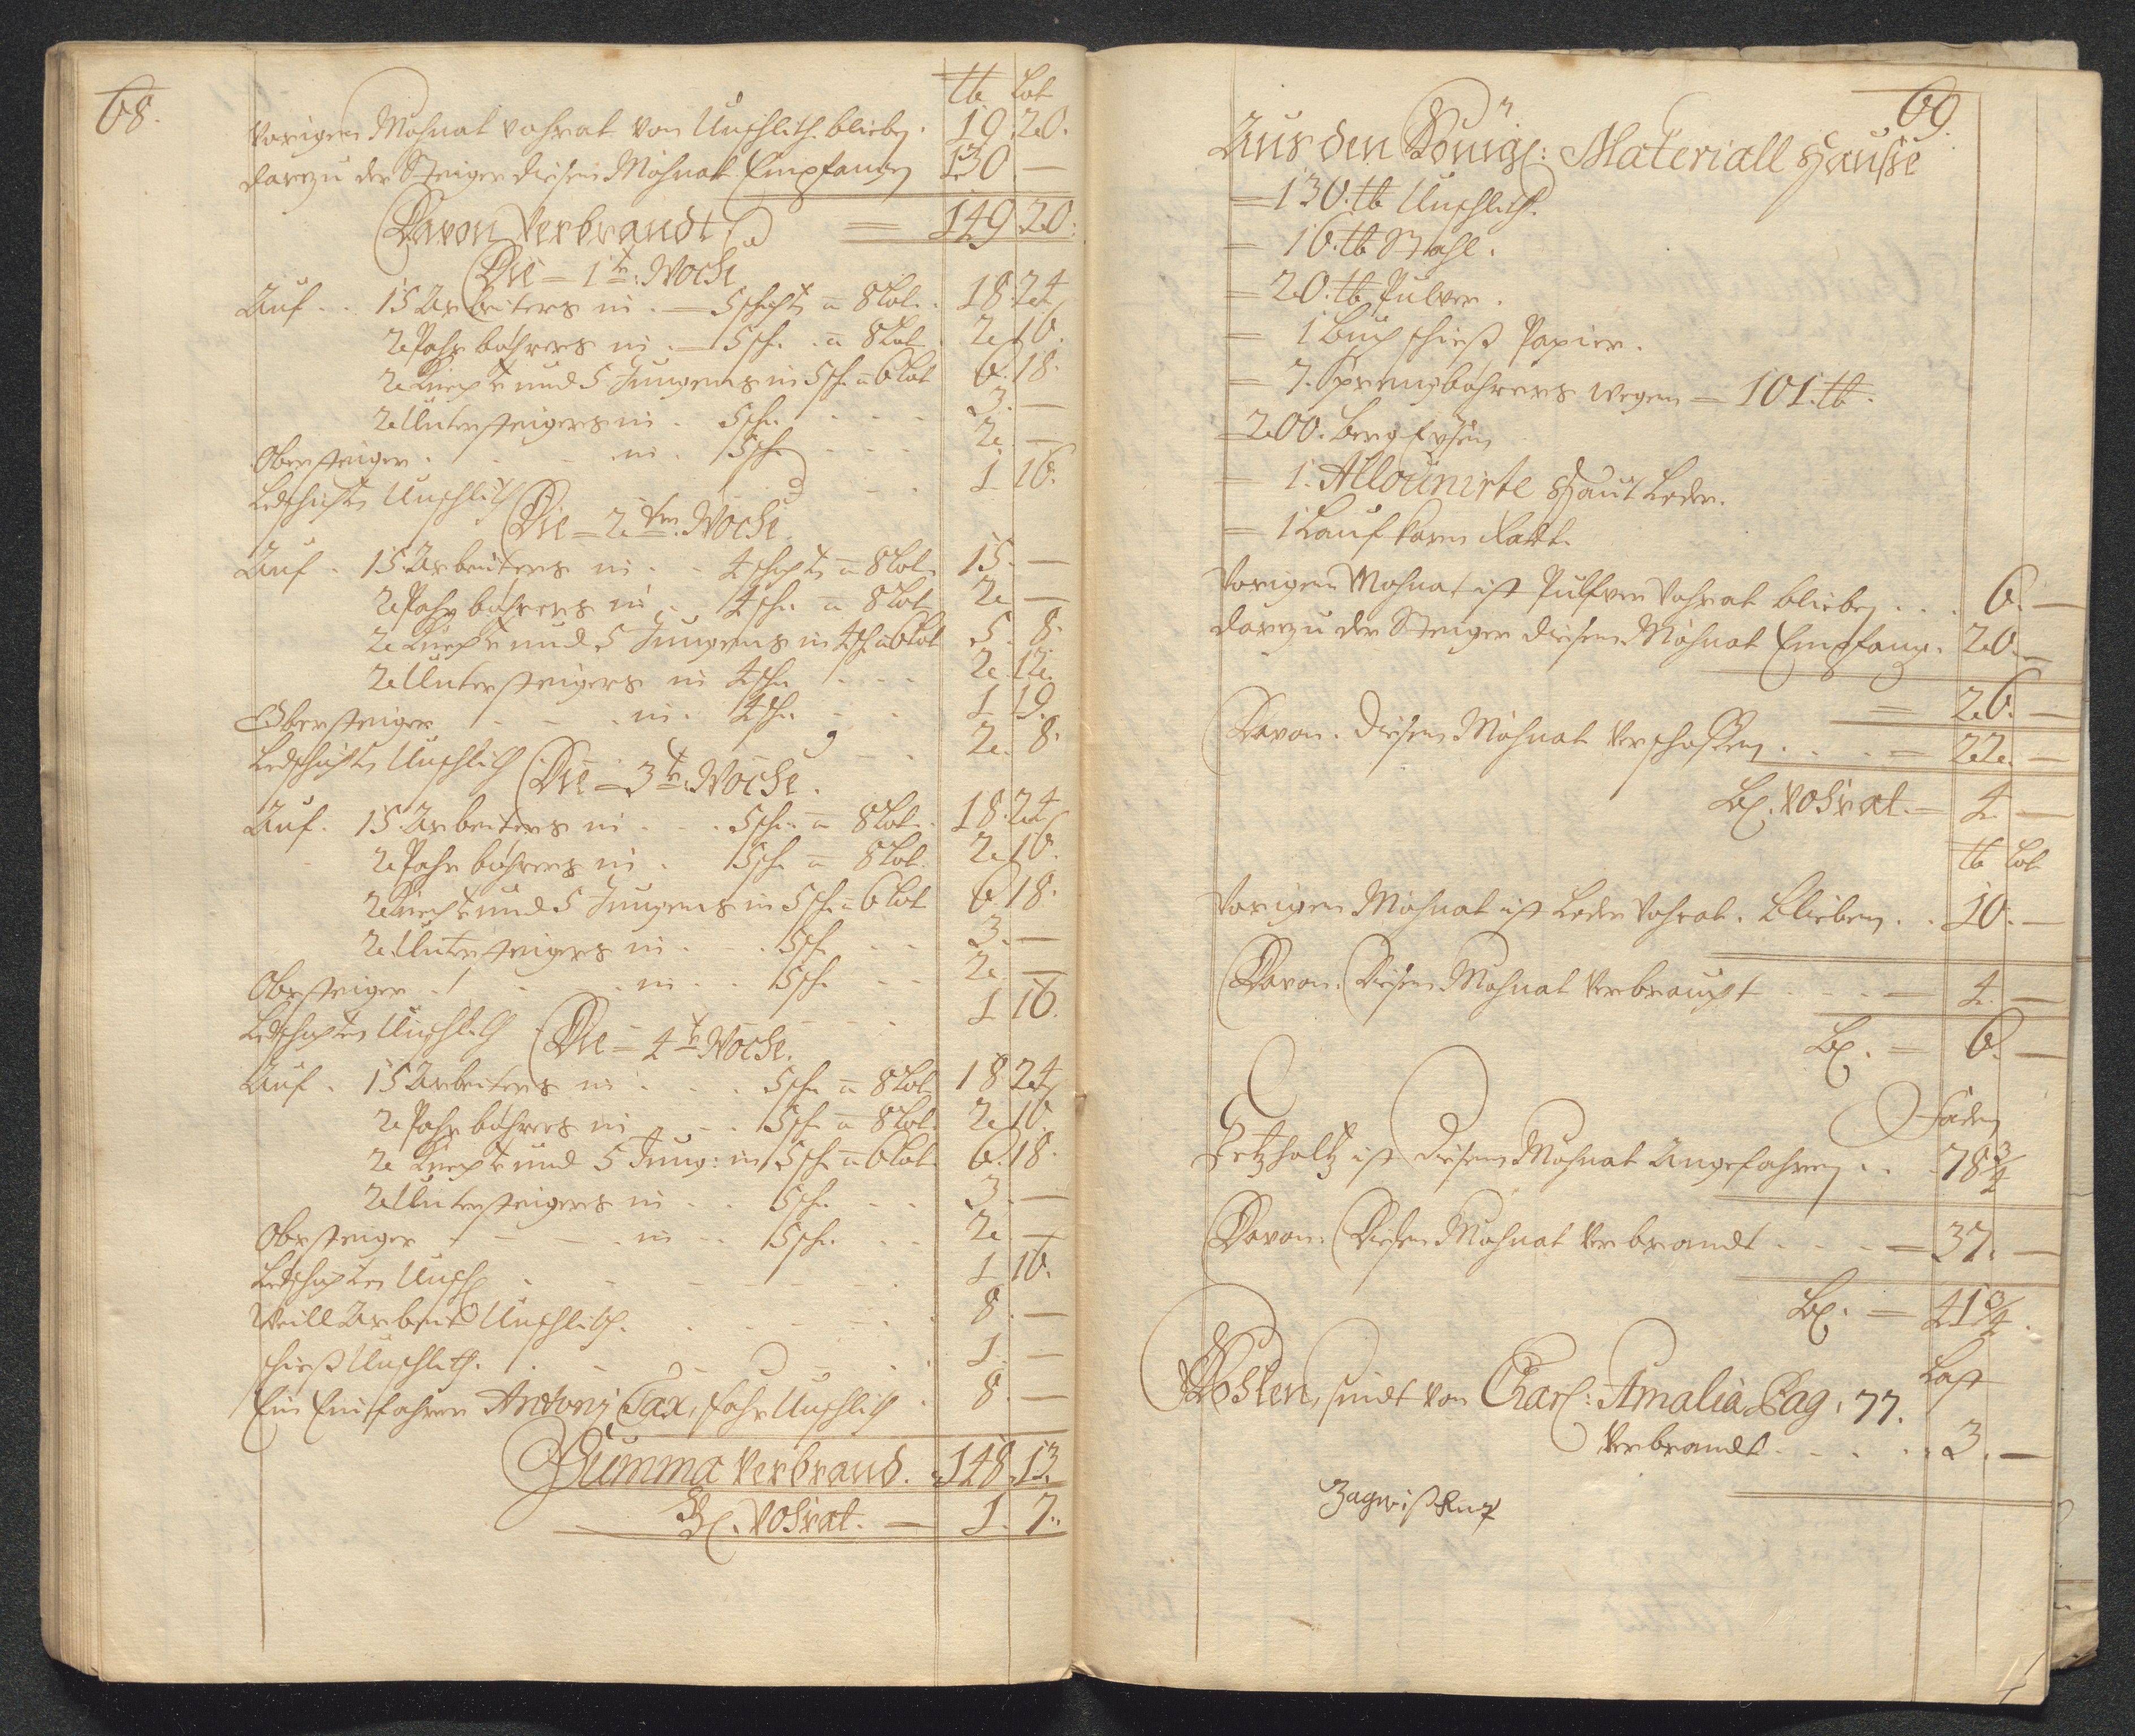 68.
tb Lot
Vorigen Mohnat vohrat von Unschlith blieben. 19. 20.
darzu der Steiger diesen Mohnat Empfangen 130. —
Davon Verbrandt = 149 20.
Die = 1te: Woche
Auf . . 15 Arbeiters in . — 5 schicht a 8 Lot . 18. 24
2 Pahr bohrers in . — 5 sch. . a 8 Lot . 2. 16.
2 Knecht und 5 Jungens in 5 sch. a 6 Lot 6. 18.
2 Untersteigers in . 5 sch. . . . 3. —
Obersteiger . . . in . 5 sch. . . . 2. —
Ledschicht Unschlith . . . 1 16.
Die = 2ten. Woche.
Auf . 15 Arbeiters in . . 4 schicht a 8 Lot 15. —
2 Pahr bohrers in . 4 sch. a 8 Lot 2 —
2 Knecht und 5 Jungens in 4 sch. a 6 Lot 5. 8.
2 Untersteigers in 4 sch. . . . 2. 12.
Obersteiger . . . in . 4 sch. . . 1 19.
Ledschicht Unschlith . . . 2. 8.
Die = 3te. Woche.
Auf . 15 Arbeiters in . . . 5 sch. a 8 Lot . 18. 24
2 Pahr bohrers in . 5 sch. a 8 Lot . 2. 16.
2 Knecht und 5 Jungens in 5 sch. a 6 Lot 6. 18.
2 Untersteigers in . . . 5 sch. . . 3. —
Obersteiger . . . in . . 5 sch. . . 2 —
Ledschichten Unschlith . . . 1 16.
Die = 4te Woche.
Auf . 15 Arbeiters in . . . 5 sch. a 8 Lot 18 24
2 Pahr bohrers in . . . 5 sch. a 8 Lot . 2. 16.
2 Knecht und 5 Jung: in 5 sch. a 6 Lot . 6. 18.
2 Untersteigers in . . 5 sch. . . 3. —
Obersteiger . . . in . . 5 sch. . . 2 —
Ledschichten Unschl . . . 1 16.
Weill Arbeit Unschlith . . . 8. —
schieß Unschlith . . . 1. —
Ein Einfahrer Antony Tax, fahr Unschlith . 8. —
Summa Verbrand. = 148. 13.
Bl. Vohrat. — 1. 7.
69.
Aus den Königl: Materiall Hauße
= 130. tb Unschlith.
= 16. tb Stahl.
= 20. tb Pulver.
= 1 Buch schieß Papier.
= 7. Sprengbohrers wegen = 101. tb.
= 200. Berg Eysen
= 1. Allounirte Haut Leder.
= 1 Lauf karn Radt.
Vorigen Mohnat ist Pulfver Vohrat blieben . . . 6. —
darzu der Steiger diesen Mohnat Empfang. 20. —
= 26. —
Davon. diesen Mohnat verschoßen . . . = 22. —
Bl. Vohrat. = 4. —
tb Lot
Vorigen Mohnat ist Leder Vohrat. Blieben . . 10. —
Davon. Diesen Mohnat Verbraucht . . . = 4. —
Bl. = 6. —
Faden
Setzholtz ist diesen Mohnat Angefahren . . . 78 3/4
Davon. Diesen Mohnat Verbrandt . . . = 37. —
Bl. = 41 3/4.
Last
Kohlen, sindt von Charl: Amalia Pag. 77.
Verbrandt . . . . 3. —